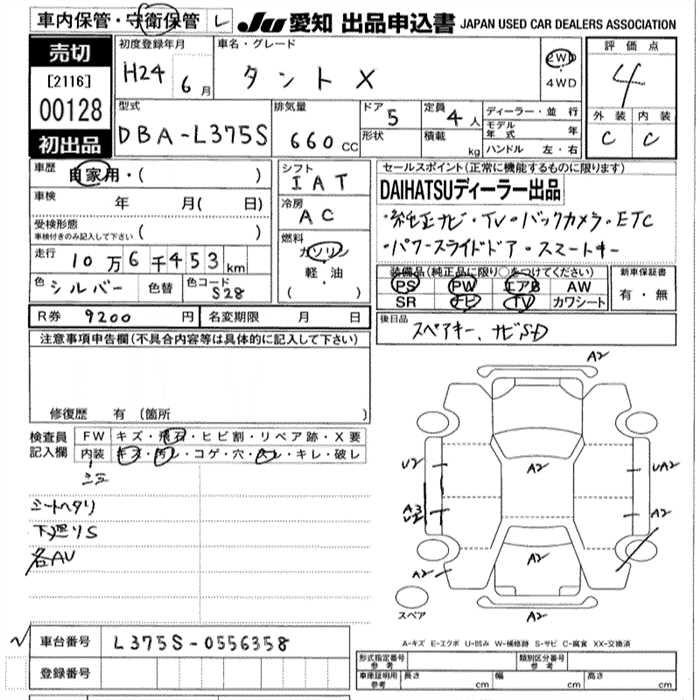 車内保管・守衛保管 レ
JU 愛知 出品申込書 JAPAN USED CAR DEALERS ASSOCIATION
売切
[2116]
00128
初出品
初度登録年月 車名・グレード 評価点
H24 6月 タントX 2WD 4WD 4
型式 排気量 ドア 定員 ディーラー・並行 外装 内装
DBA-L375S 660CC 5 4人 モデル年式 年 C C
形状 積載 kg ハンドル 左・右
車歴 自家用・( )
車検 年 月( 日)
受検形態 車検付きのみ記入して下さい ( )
走行 10万6千453km
色 シルバー 色替 色コード S28
シフト IAT
冷房 AC
燃料 ガソリン 軽・油 ・( )
セールスポイント(正常に機能するものに限ります)
DAIHATSUディーラー出品
・純正ナビ・TV・バックカメラ・ETC
・パワースライドドア・スマートキー
装備品(純正品に限り○をつけてください) 新車保証書
PS PW エアB AW 有・無
SR ナビ TV カワシート
R券 9200円 名変期限 月 日
後日品 スペアキー、ナビSD
注意事項申告欄(不具合内容等は具体的に記入して下さい)
修復歴 有 (箇所 )
検査員記入欄
FW キズ・飛石・ヒビ割・リペア跡・X要
内装 キズ・汚レ・コゲ・穴・スレ・キレ・破レ
シートヘタリ
下廻りS
各AU
A2
A2
U2
UA2
A2
A2
A2
A2
A2
A2
スペア
A-キズ E-エクボ U-凹み W-補修跡 S-サビ C-腐食 XX-交換済
車台番号 L375S-0556358
登録番号
形式指定番号 参考 類別区分番号 参考
車庫証明用 参考 長さ cm 幅 cm 高さ cm